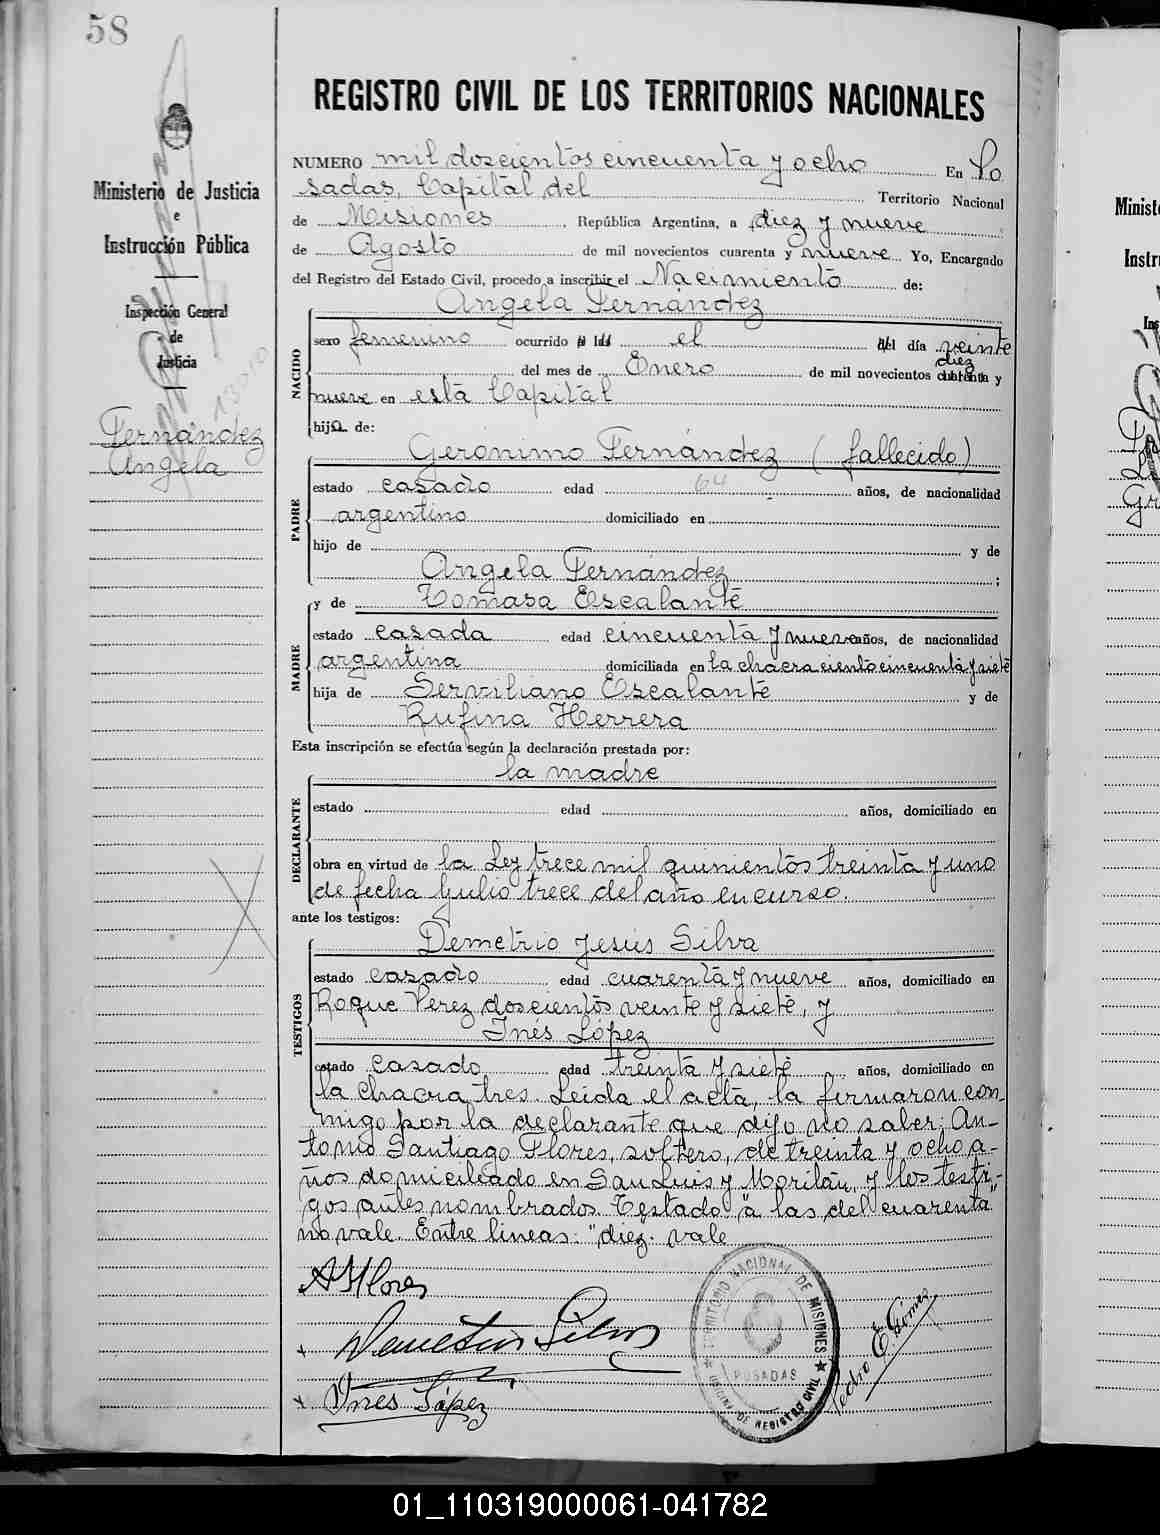 58
REGISTRO CIVIL DE LOS TERRITORIOS NACIONALES
Ministerio de Justicia
e
Instrucción Pública
Inspección General
de
Justicia
Fernández
Angela
NUMERO mil doscientos cincuenta y ocho En Po
sadas, Capital del Territorio Nacional
de Misiones, República Argentina, a diez y nueve
de Agosto de mil novecientos cuarenta y nueve Yo, Encargado
del Registro del Estado Civil, procedo a inscribir el Nacimiento de:
Angela Fernández
NACIDO
sexo femenino ocurrido el del día veinte
diez
del mes de Enero de mil novecientos cuarenta y
nueve en esta Capital
hija de:
Gerónimo Fernández (fallecido)
PADRE
estado casado edad 64 años, de nacionalidad
argentino domiciliado en
hijo de y de
Angela Fernández ;
y de Tomasa Escalante
MADRE
estado casada edad cincuenta y nueve años, de nacionalidad
argentina domiciliada en la chacra ciento cincuenta y siete
hija de Serviliano Escalante y de
Rufina Herrera
Esta inscripción se efectúa según la declaración prestada por:
la madre
DECLARANTE
estado edad años, domiciliado en
obra en virtud de la Ley trece mil quinientos treinta y uno
de fecha Julio trece del año en curso.
ante los testigos:
Demetrio Jesús Silva
TESTIGOS
estado casado edad cuarenta y nueve años, domiciliado en
Roque Perez doscientos veinte y siete, y
Inés López
estado casado edad treinta y siete años, domiciliado en
la chacra tres. Leida el acta, la firmaron con-
migo por la declarante que dijo no saber: An-
tonio Santiago Flores, soltero, de treinta y ocho a-
ños domiciliado en San Luis y Morilán, y los testi-
gos antes nombrados. Testado "a las del cuarenta"
no vale. Entre lineas: "diez. vale
A Flores
Demetrio Silva
Ynes López
Pedro E. Gómez
TERRITORIO NACIONAL DE MISIONES
POSADAS
OFICINA DE REGISTRO CIVIL
Minist
Instr
01_110319000061-041782